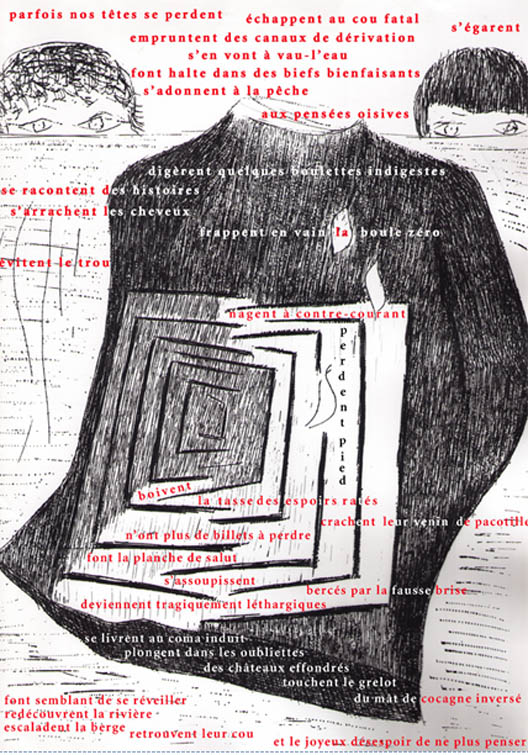 parfois nos têtes se perdent
échappent au cou fatal
s'égarent
empruntent des canaux de dérivation
s'en vont à vau-l'eau
font halte dans des biefs bienfaisants
s'adonnent à la pêche
aux pensées oisives
digèrent quelques boulettes indigestes
se racontent des histoires
s'arrachent les cheveux
frappent en vain la boule zéro
évitent le trou
nagent à contre-courant
perdent pied
boivent
la tasse des espoirs ratés
crachent leur venin de pacotille
n'ont plus de billets à perdre
font la planche de salut
s'assoupissent
bercés par la fausse brise
deviennent tragiquement léthargiques
se livrent au coma induit
plongent dans les oubliettes
des châteaux effondrés
touchent le grelot
du mât de cocagne inversé
font semblant de se réveiller
redécouvrent la rivière
escaladent la berge
retrouvent leur cou
et le joyeux désespoir de ne plus penser